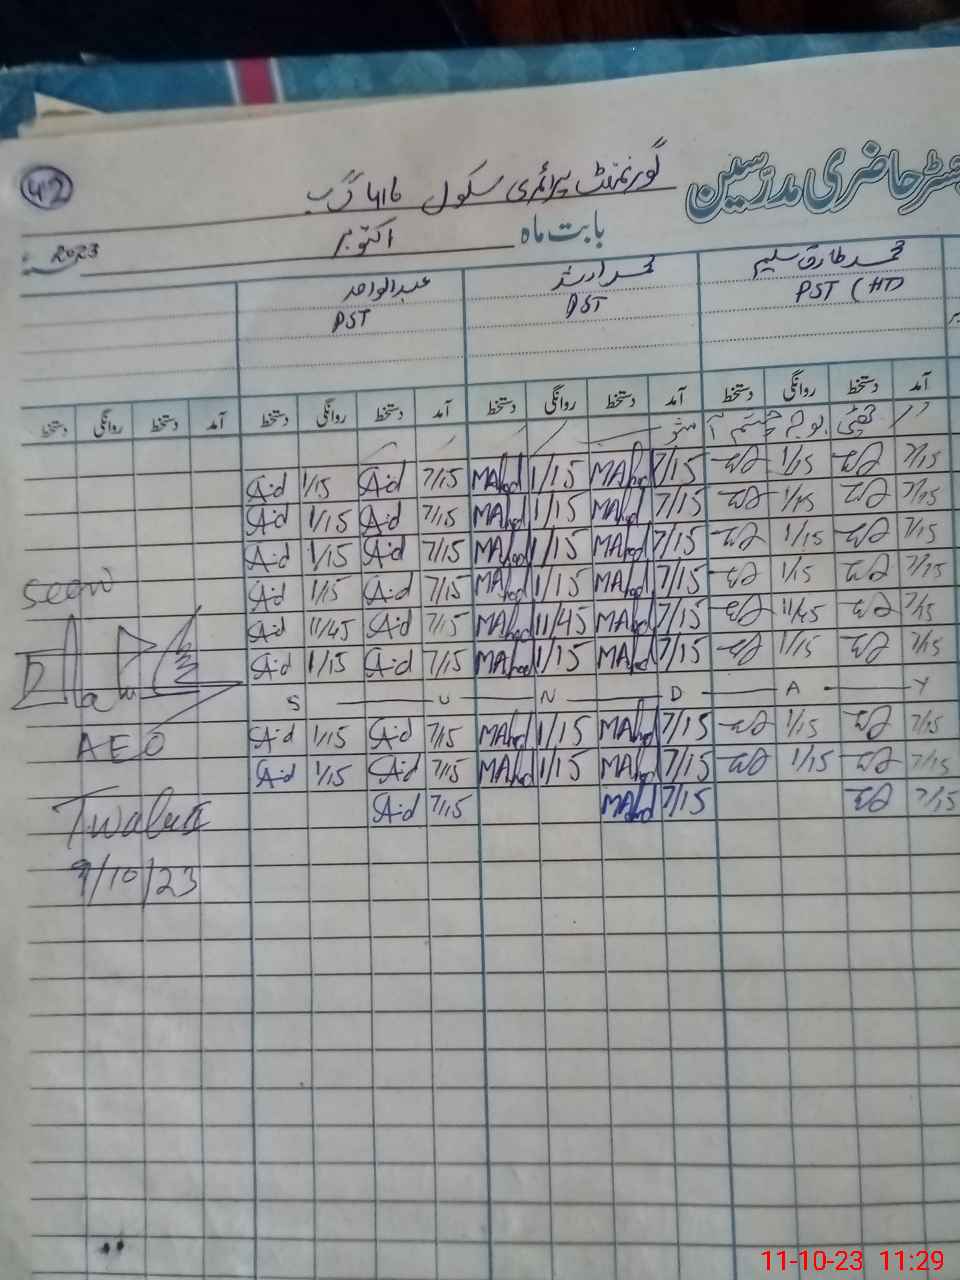 رجسٹر حاضری مدرسین گورنمنٹ پرائمری سکول 416 گ ب
42
بابت ماہ اکتوبر 2023
محمد طارق سلیم محمد ارشد عبدالواحد
PST (HT) PST PST
آمد دستخط روانگی دستخط آمد دستخط روانگی دستخط آمد دستخط روانگی دستخط آمد دستخط روانگی دستخط
7/15 1/15 7/15 MAhd 1/15 MAhd 7/15 Aid 1/15 Aid
7/15 1/45 7/15 MAhd 1/15 MAhd 7/15 Aid 1/15 Aid
7/15 1/15 7/15 MAhd 1/15 MAhd 7/15 Aid 1/15 Aid
7/15 1/15 7/15 MAhd 1/15 MAhd 7/15 Aid 1/15 Aid
7/15 11/45 7/15 MAhd 11/45 MAhd 7/15 Aid 11/45 Aid
7/15 1/15 7/15 MAhd 1/15 MAhd 7/15 Aid 1/15 Aid
S U N D A Y
7/15 1/15 7/15 MAhd 1/15 MAhd 7/15 Aid 1/15 Aid
7/15 1/15 7/15 MAhd 1/15 MAhd 7/15 Aid 1/15 Aid
7/15 7/15 MAhd 7/15 Aid
Seen
AEO
9/10/23
11-10-23 11:29